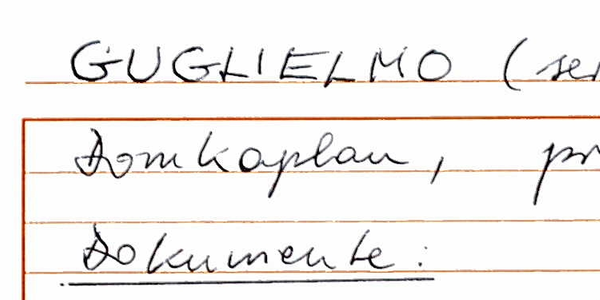 GUGLIELMO (ser
Domkaplan, pr
Dokumente: